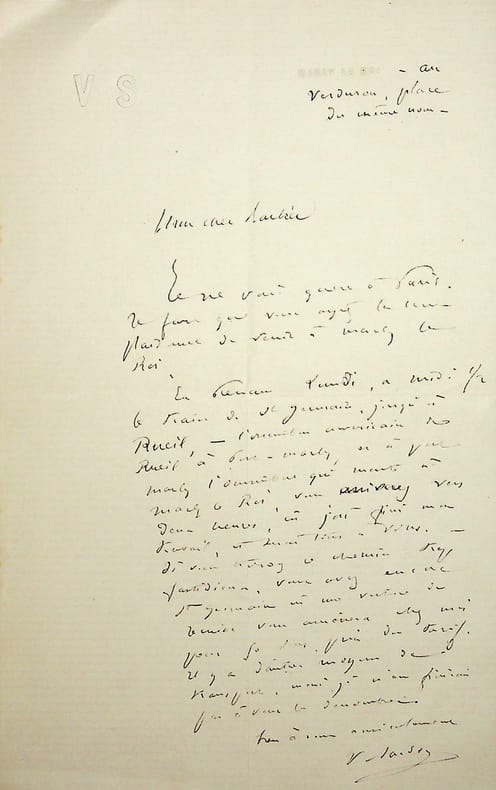 V S
MARLY LE ROI
- au
Verduron, place
du même nom -
Mon cher
Je ne vais guère à Paris.
Il faut que vous ayez la com-
plaisance de venir à Marly le
Roi.
En prenant Lundi, à midi 1/2
le train de St Germain, jusqu'à
Rueil, - l'omnibus américain de
Rueil à Port-Marly, et à port
marly l'omnibus qui monte à
Marly le Roi, vous arrivez vers
deux heures, où j'ai fini mon
travail, et suis tout à vous. -
Si vous trouvez ce chemin trop
fastidieux, vous avez encore
St germain où une voiture de
remise vous amènera chez moi
pour 50 prix du tarif.
Il y a d'autres moyens de
transport, mais je n'en finirais
pas à vous les dénombrer.
bien à vous amicalement
V. Sardou